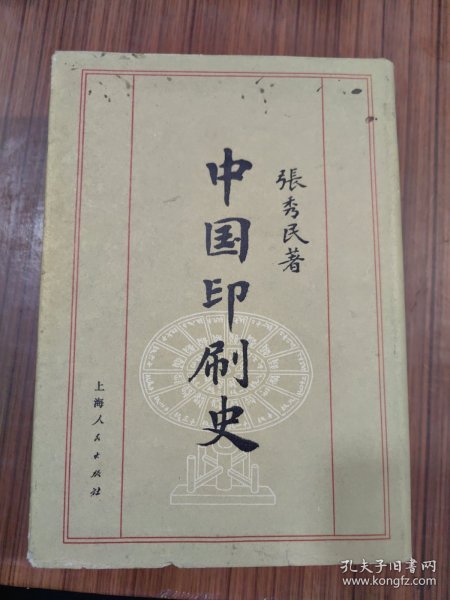 張秀民著
中国印刷史
上海人民出版社
孔夫子旧书网
www.kongfz.com